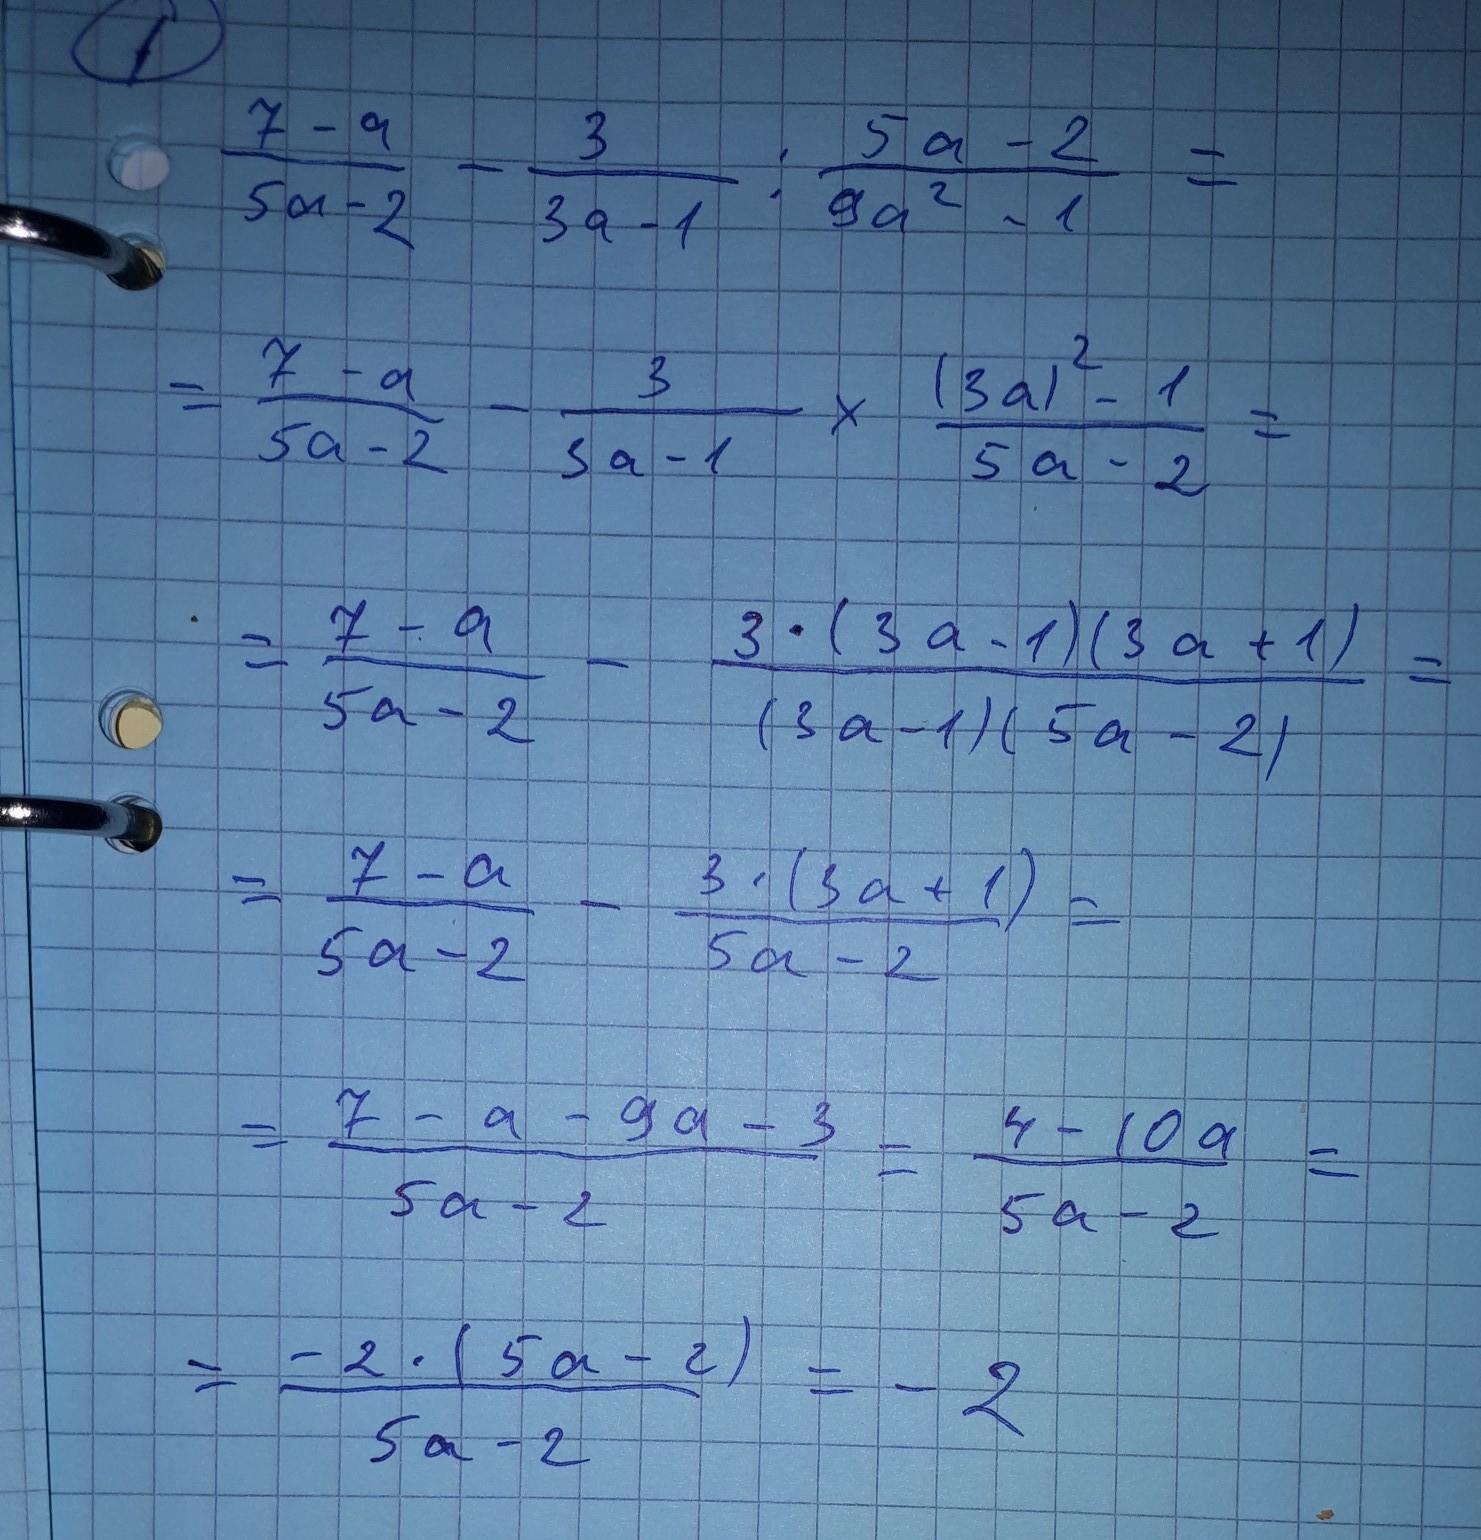 1
(7 - a)/(5a - 2) - 3/(3a - 1) : (5a - 2)/(9a² - 1) =
= (7 - a)/(5a - 2) - 3/(3a - 1) × ((3a)² - 1)/(5a - 2) =
= (7 - a)/(5a - 2) - (3·(3a - 1)(3a + 1))/((3a - 1)(5a - 2)) =
= (7 - a)/(5a - 2) - (3·(3a + 1))/(5a - 2) =
= (7 - a - 9a - 3)/(5a - 2) = (4 - 10a)/(5a - 2) =
= (-2·(5a - 2))/(5a - 2) = -2